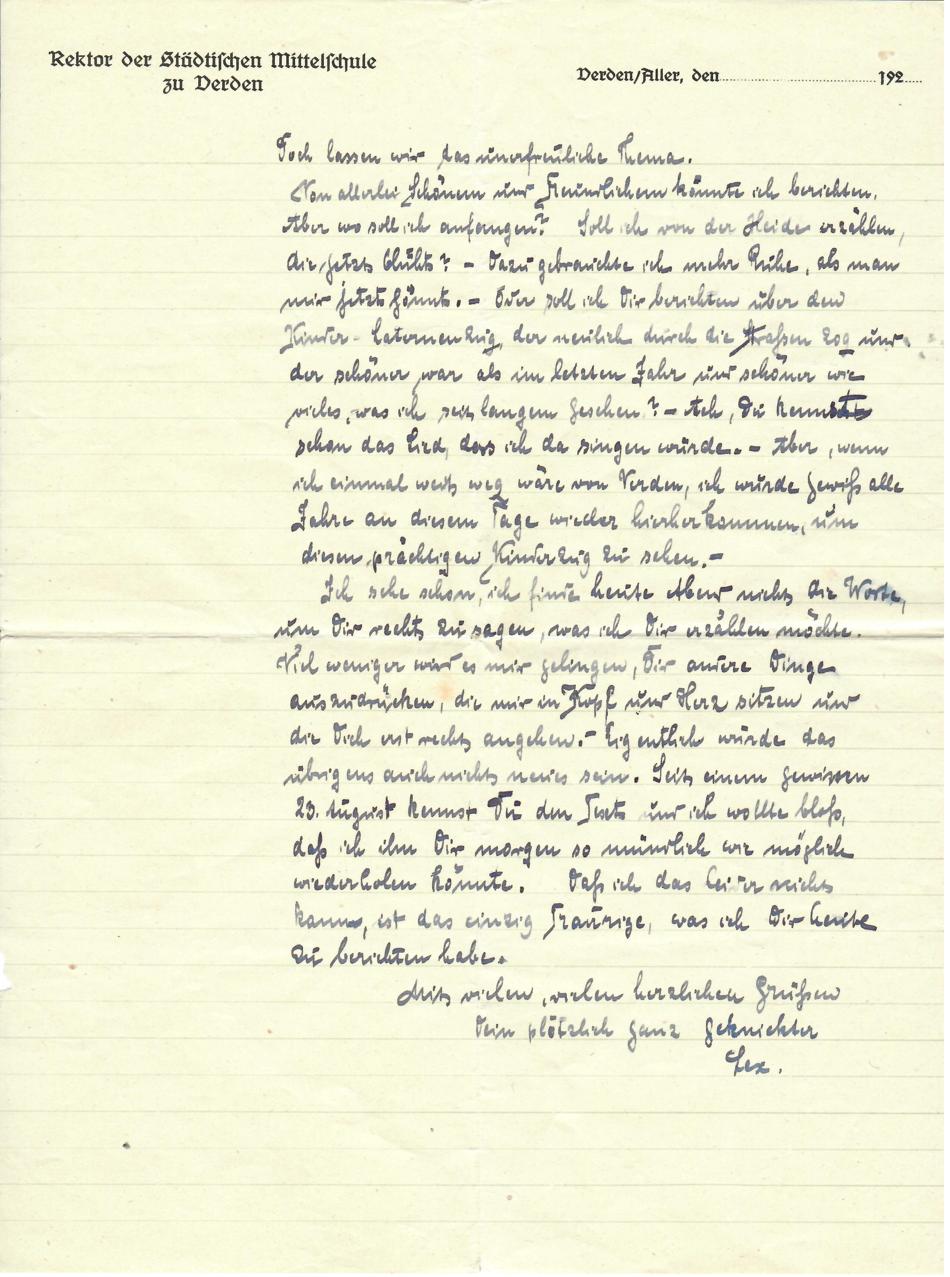 Rektor der Städtischen Mittelschule
zu Verden
Verden/Aller, den 192
Doch lassen wir das unerfreuliche Thema.
Von allerlei Schönem und Freundlichem könnte ich berichten.
Aber wo soll ich anfangen? Soll ich von der Heide erzählen,
die jetzt blüht? - Dazu gebrauchte ich mehr Ruhe, als man
mir jetzt gönnt. - Oder soll ich Dir berichten über den
Kinder-Laternenzug, der neulich durch die Straßen zog und
der schöner war als im letzten Jahr und schöner wie
vieles, was ich seit langem gesehen? - Ach, Du kennst
schon das Lied, das ich da singen würde. - Aber, wenn
ich einmal weit weg wäre von Verden, ich würde gewiß alle
Jahre an diesem Tage wieder hierher kommen, um
diesen prächtigen Kinderzug zu sehen. -
Ich sehe schon, ich finde heute Abend nicht die Worte,
um Dir recht zu sagen, was ich Dir erzählen möchte.
Viel weniger wird es mir gelingen, Dir andere Dinge
auszudrücken, die mir in Kopf und Herz sitzen und
die Dich erst recht angehen. - Eigentlich würde das
übrigens auch nichts neues sein. Seit einem gewissen
23. August kennst Du den Text und ich wollte bloß,
daß ich ihn Dir morgen so mündlich wie möglich
wiederholen könnte. Daß ich das leider nicht
kann, ist das einzig Traurige, was ich Dir heute
zu berichten habe.
Mit vielen, vielen herzlichen Grüßen
Dein plötzlich ganz geknickter
Lex.